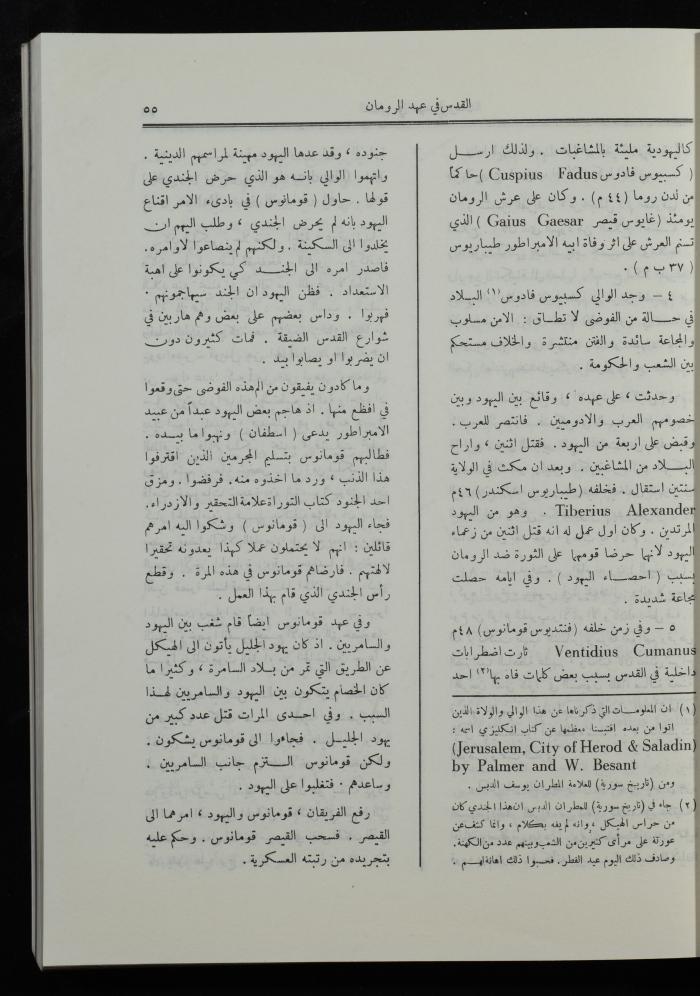 القدس في عهد الرومان
٥٥
كاليهودية مليئة بالمشاغبات . ولذلك ارسل
( كسبيوس فادوس Cuspius Fadus ) حاكماً
من لدن روما ( ٤٤ م ) . وكان على عرش الرومان
يومئذ ( غايوس قيصر Gaius Gaesar ) الذي
تسنم العرش على اثر وفاة ابيه الامبراطور طيباريوس
( ٣٧ ب م ) .
٤ – وجد الوالي كسبيوس فادوس (١) البلاد
في حالة من الفوضى لا تطاق : الامن مسلوب
والمجاعة سائدة والفتن منتشرة والخلاف مستحكم
بين الشعب والحكومة .
وحدثت ، على عهده ، وقائع بين اليهود وبين
خصومهم العرب والادوميين . فانتصر للعرب .
وقبض على اربعة من اليهود . فقتل اثنين ، واراح
البلاد من المشاغبين . وبعد ان مكث في الولاية
سنتين استقال . فخلفه ( طيباريوس اسكندر ) ٤٦م
Tiberius Alexander . وهو من اليهود
المرتدين . وكان اول عمل له انه قتل اثنين من زعماء
اليهود لانهما حرضا قومهما على الثورة ضد الرومان
بسبب ( احصاء اليهود ) . وفي ايامه حصلت
مجاعة شديدة .
٥ – وفي زمن خلفه ( فنتديوس قومانوس ) ٤٨م
Ventidius Cumanus ثارت اضطرابات
داخلية في القدس بسبب بعض كلمات فاه بها (٢) احد
(١) ان المعلومات التي ذكرناها عن هذا الوالي والولاة الذين
اتوا من بعده اقتبسنا معظمها عن كتاب انكليزي اسمه :
(Jerusalem, City of Herod & Saladin)
by Palmer and W. Besant
ومن ( تاريخ سورية ) للعلامة المطران يوسف الدبس .
(٢) جاء في ( تاريخ سورية ) للمطران الدبس ان هذا الجندي كان
من حراس الهيكل ، وانه لم يفه بكلام ، وانما كشف عن
عورته على مرأى كثيرين من الشعب وبينهم عدد من الكهنة .
وصادف ذلك اليوم عيد الفطر . فحسبوا ذلك اهانة لهم .
جنوده ، وقد عدها اليهود مهينة لمراسمهم الدينية .
واتهموا الوالي بانه هو الذي حرض الجندي على
قولها . حاول ( قومانوس ) في بادىء الامر اقناع
اليهود بانه لم يحرض الجندي ، وطلب اليهم ان
يخلدوا الى السكينة . ولكنهم لم ينصاعوا لاوامره .
فاصدر امره الى الجند كي يكونوا على اهبة
الاستعداد . فظن اليهود ان الجند سيهاجمونهم .
فهربوا . وداس بعضهم على بعض وهم هاربين في
شوارع القدس الضيقة . فمات كثيرون دون
ان يضربوا او يصابوا بيد .
وما كادون يفيقون من الم هذه الفوضى حتى وقعوا
في افظع منها . اذ هاجم بعض اليهود عبداً من عبيد
الامبراطور يدعى ( اسطفان ) ونهبوا ما بيده .
فطالبهم قومانوس بتسليم المجرمين الذين اقترفوا
هذا الذنب ، ورد ما اخذوه منه . فرفضوا . ومزق
احد الجنود كتاب التوراة علامة التحقير والازدراء .
فجاء اليهود الى ( قومانوس ) وشكوا اليه امرهم
قائلين : انهم لا يحتملون عملا كهذا يعدونه تحقيرا
لالهتهم . فارضاهم قومانوس في هذه المرة . وقطع
رأس الجندي الذي قام بهذا العمل .
وفي عهد قومانوس ايضاً قام شغب بين اليهود
والسامريين . اذ كان يهود الجليل يأتون الى الهيكل
عن الطريق التي تمر من بلاد السامرة ، وكثيرا ما
كان الخصام يتكون بين اليهود والسامريين لهذا
السبب . وفي احدى المرات قتل عدد كبير من
يهود الجليل . فجاءوا الى قومانوس يشكون .
ولكن قومانوس التزم جانب السامريين .
وساعدهم . فتغلبوا على اليهود .
رفع الفريقان ، قومانوس واليهود ، امرهما الى
القيصر . فسحب القيصر قومانوس . وحكم عليه
بتجريده من رتبته العسكرية .